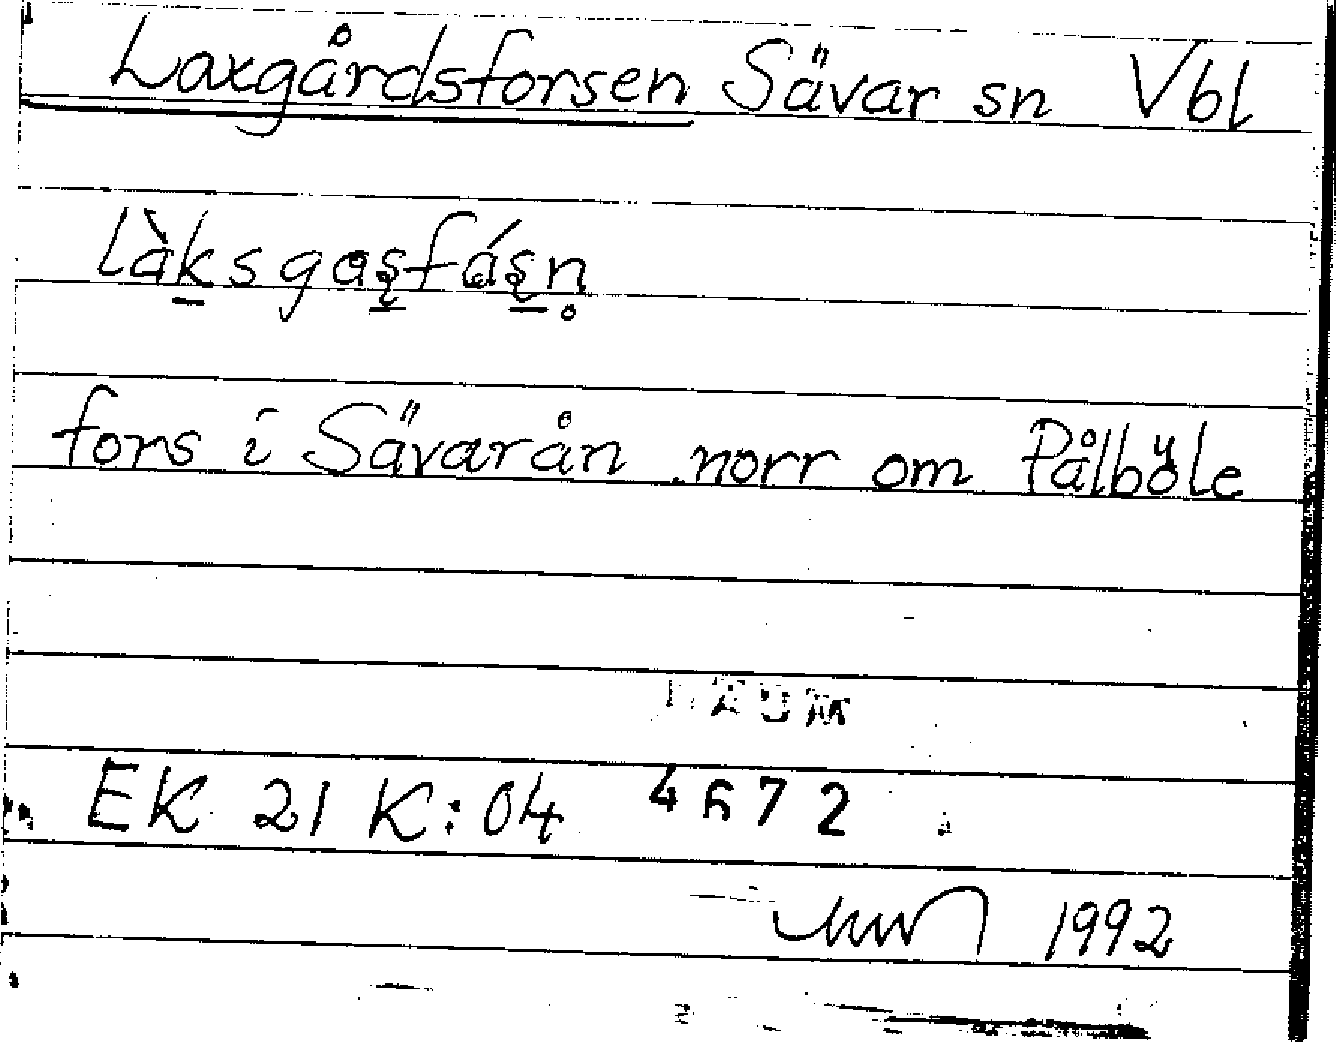 Laxgårdsforsen Sävar sn Vbl
làksgaşfáşn̥
fors i Sävarån norr om Pålböle
EK 21 K:04 4672
1992